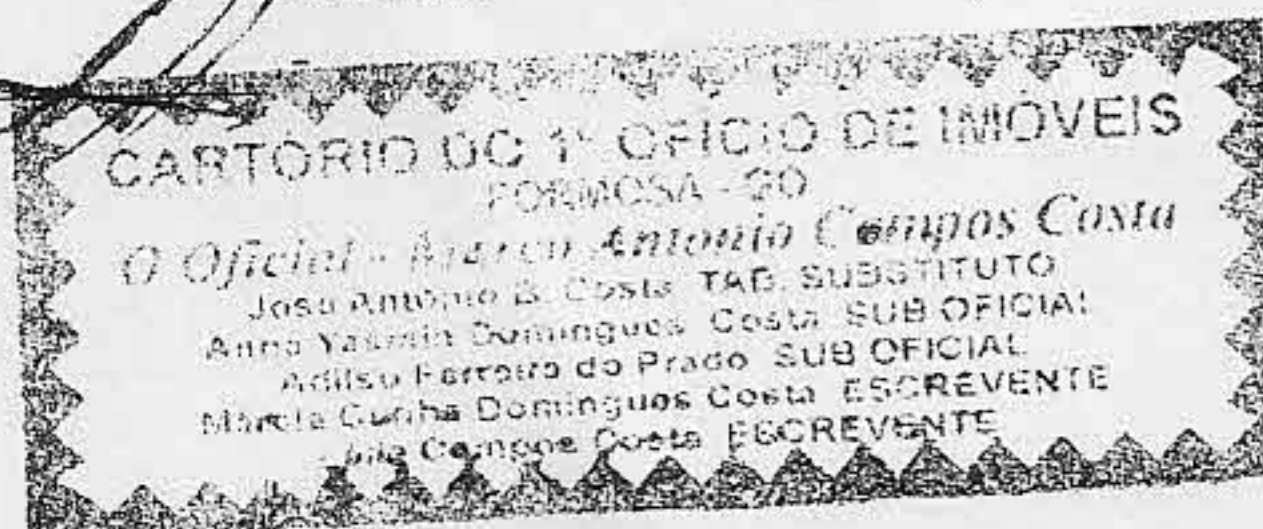 CARTORIO DO 1º OFICIO DE IMÓVEIS
FORMOSA - GO
O Oficial - Marco Antonio Campos Costa
José Antonio B. Costa TAB. SUBSTITUTO
Anna Yasmin Domingues Costa SUB OFICIAL
Ferreira do Prado SUB OFICIAL
Marcia Cunha Domingues Costa ESCREVENTE
Campos Costa ESCREVENTE